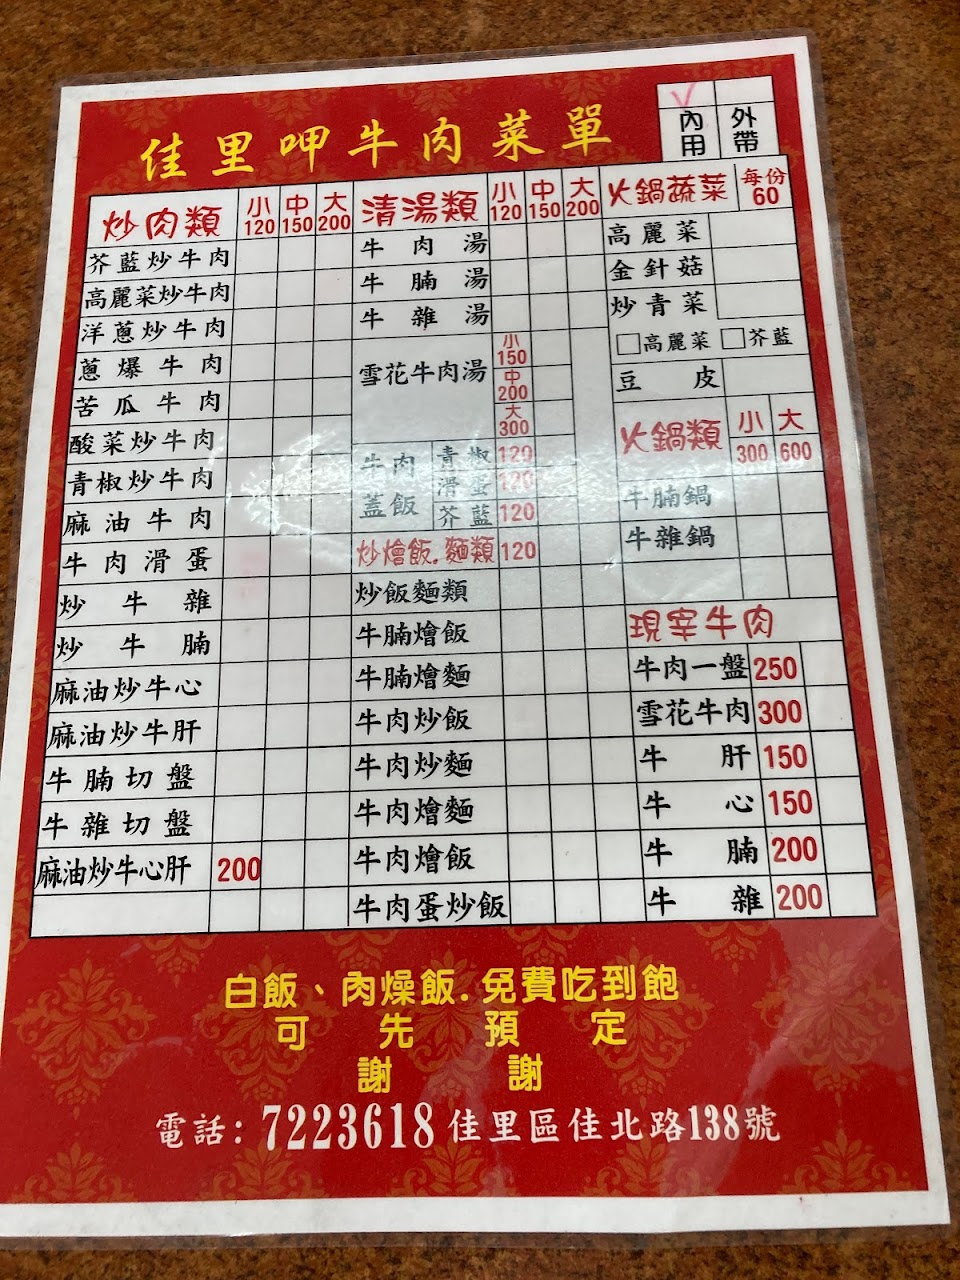 佳里呷牛肉菜單
內用
外帶
炒肉類 小120 中150 大200
芥藍炒牛肉
高麗菜炒牛肉
洋蔥炒牛肉
蔥爆牛肉
苦瓜牛肉
酸菜炒牛肉
青椒炒牛肉
麻油牛肉
牛肉滑蛋
炒牛雜
炒牛腩
麻油炒牛心
麻油炒牛肝
牛腩切盤
牛雜切盤
麻油炒牛心肝 200
清湯類 小120 中150 大200
牛肉湯
牛腩湯
牛雜湯
雪花牛肉湯 小150 中200 大300
牛肉蓋飯
青椒 120
滑蛋 120
芥藍 120
炒燴飯.麵類 120
炒飯麵類
牛腩燴飯
牛腩燴麵
牛肉炒飯
牛肉炒麵
牛肉燴麵
牛肉燴飯
牛肉蛋炒飯
火鍋蔬菜 每份60
高麗菜
金針菇
炒青菜
□高麗菜 □芥藍
豆皮
火鍋類 小300 大600
牛腩鍋
牛雜鍋
現宰牛肉
牛肉一盤 250
雪花牛肉 300
牛肝 150
牛心 150
牛腩 200
牛雜 200
白飯、肉燥飯.免費吃到飽
可先預定
謝謝
電話:7223618 佳里區佳北路138號